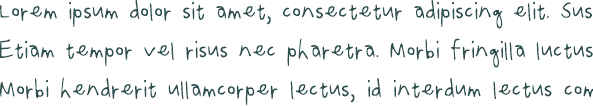 Lorem ipsum dolor sit amet, consectetur adipiscing elit. Sus
Etiam tempor vel risus nec pharetra. Morbi fringilla luctus
Morbi hendrerit ullamcorper lectus, id interdum lectus com